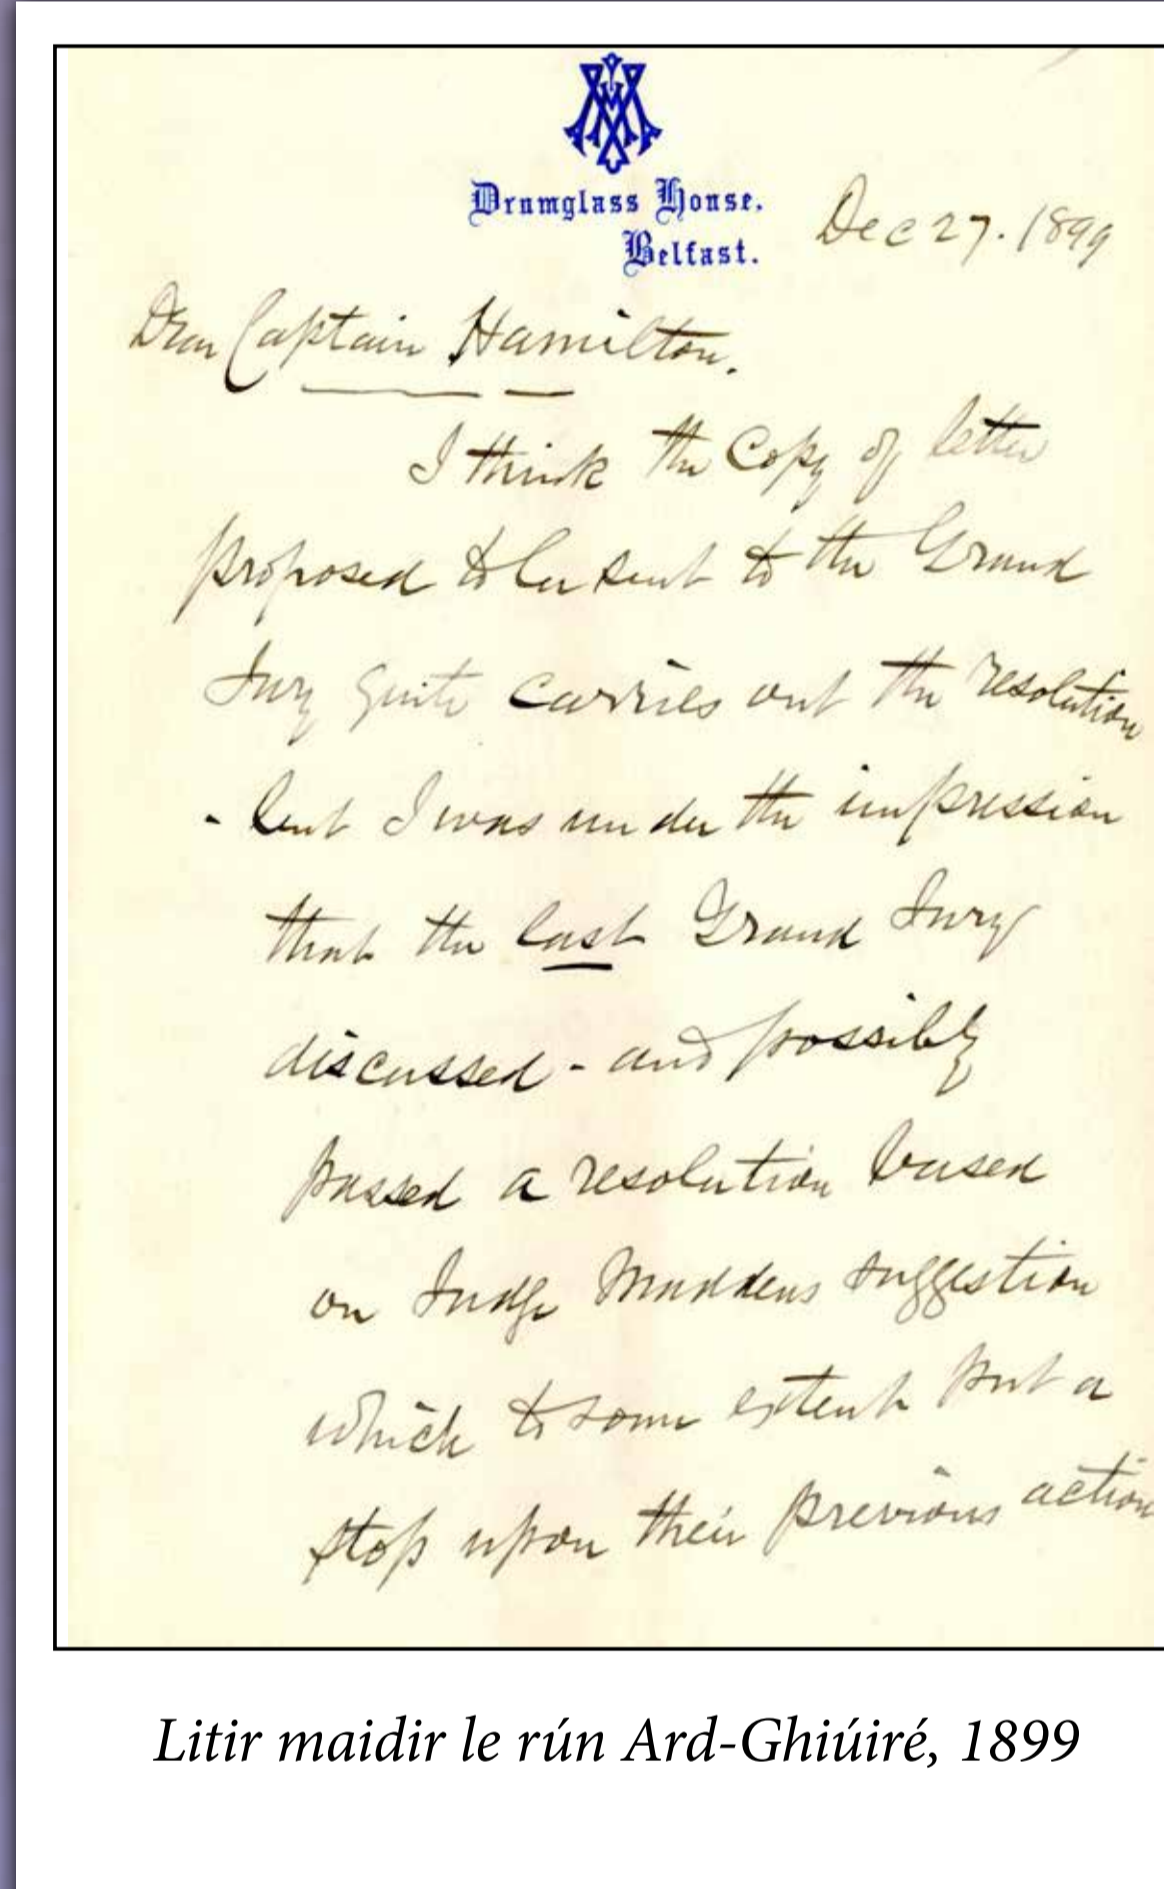 Drumglass House.
Belfast.
Dec 27. 1899
Dear Captain Hamilton.
I think the Copy of letter
proposed to be sent to the Grand
Jury quite carries out the resolution
- but I was under the impression
that the last Grand Jury
discussed - and possibly
passed a resolution based
on Judge Maddens suggestion
which to some extent put a
stop upon their previous action
Litir maidir le rún Ard-Ghiúiré, 1899